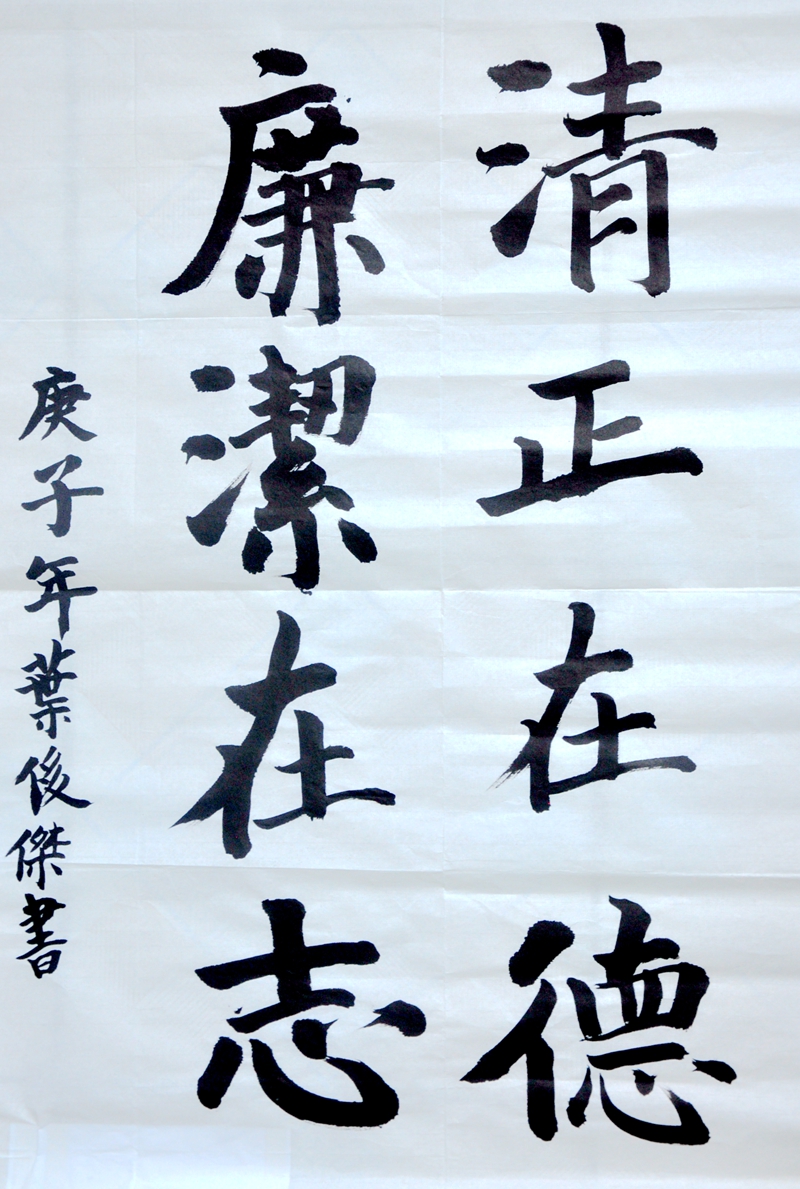 清正在德
廉潔在志
庚子年葉俊傑書